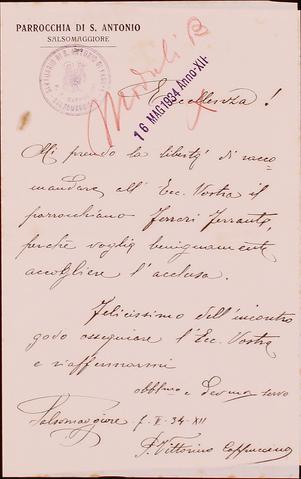 PARROCCHIA DI S. ANTONIO
SALSOMAGGIORE
Moduli B
16 MAG 1934 Anno XII
Eccellenza!
Mi prendo la libertà di racco-
mandare all'Ecc. Vostra il
parrocchiano Ferreri Ferrante,
perchè voglia benignamente
accogliere l'acclusa.
Felicissimo dell'incontro
godo ossequiare l'Ecc. Vostra
e riaffermarmi
obbl.mo e Dev.mo servo
Salsomaggiore 34-XII
P. Vittorino Cappuccino